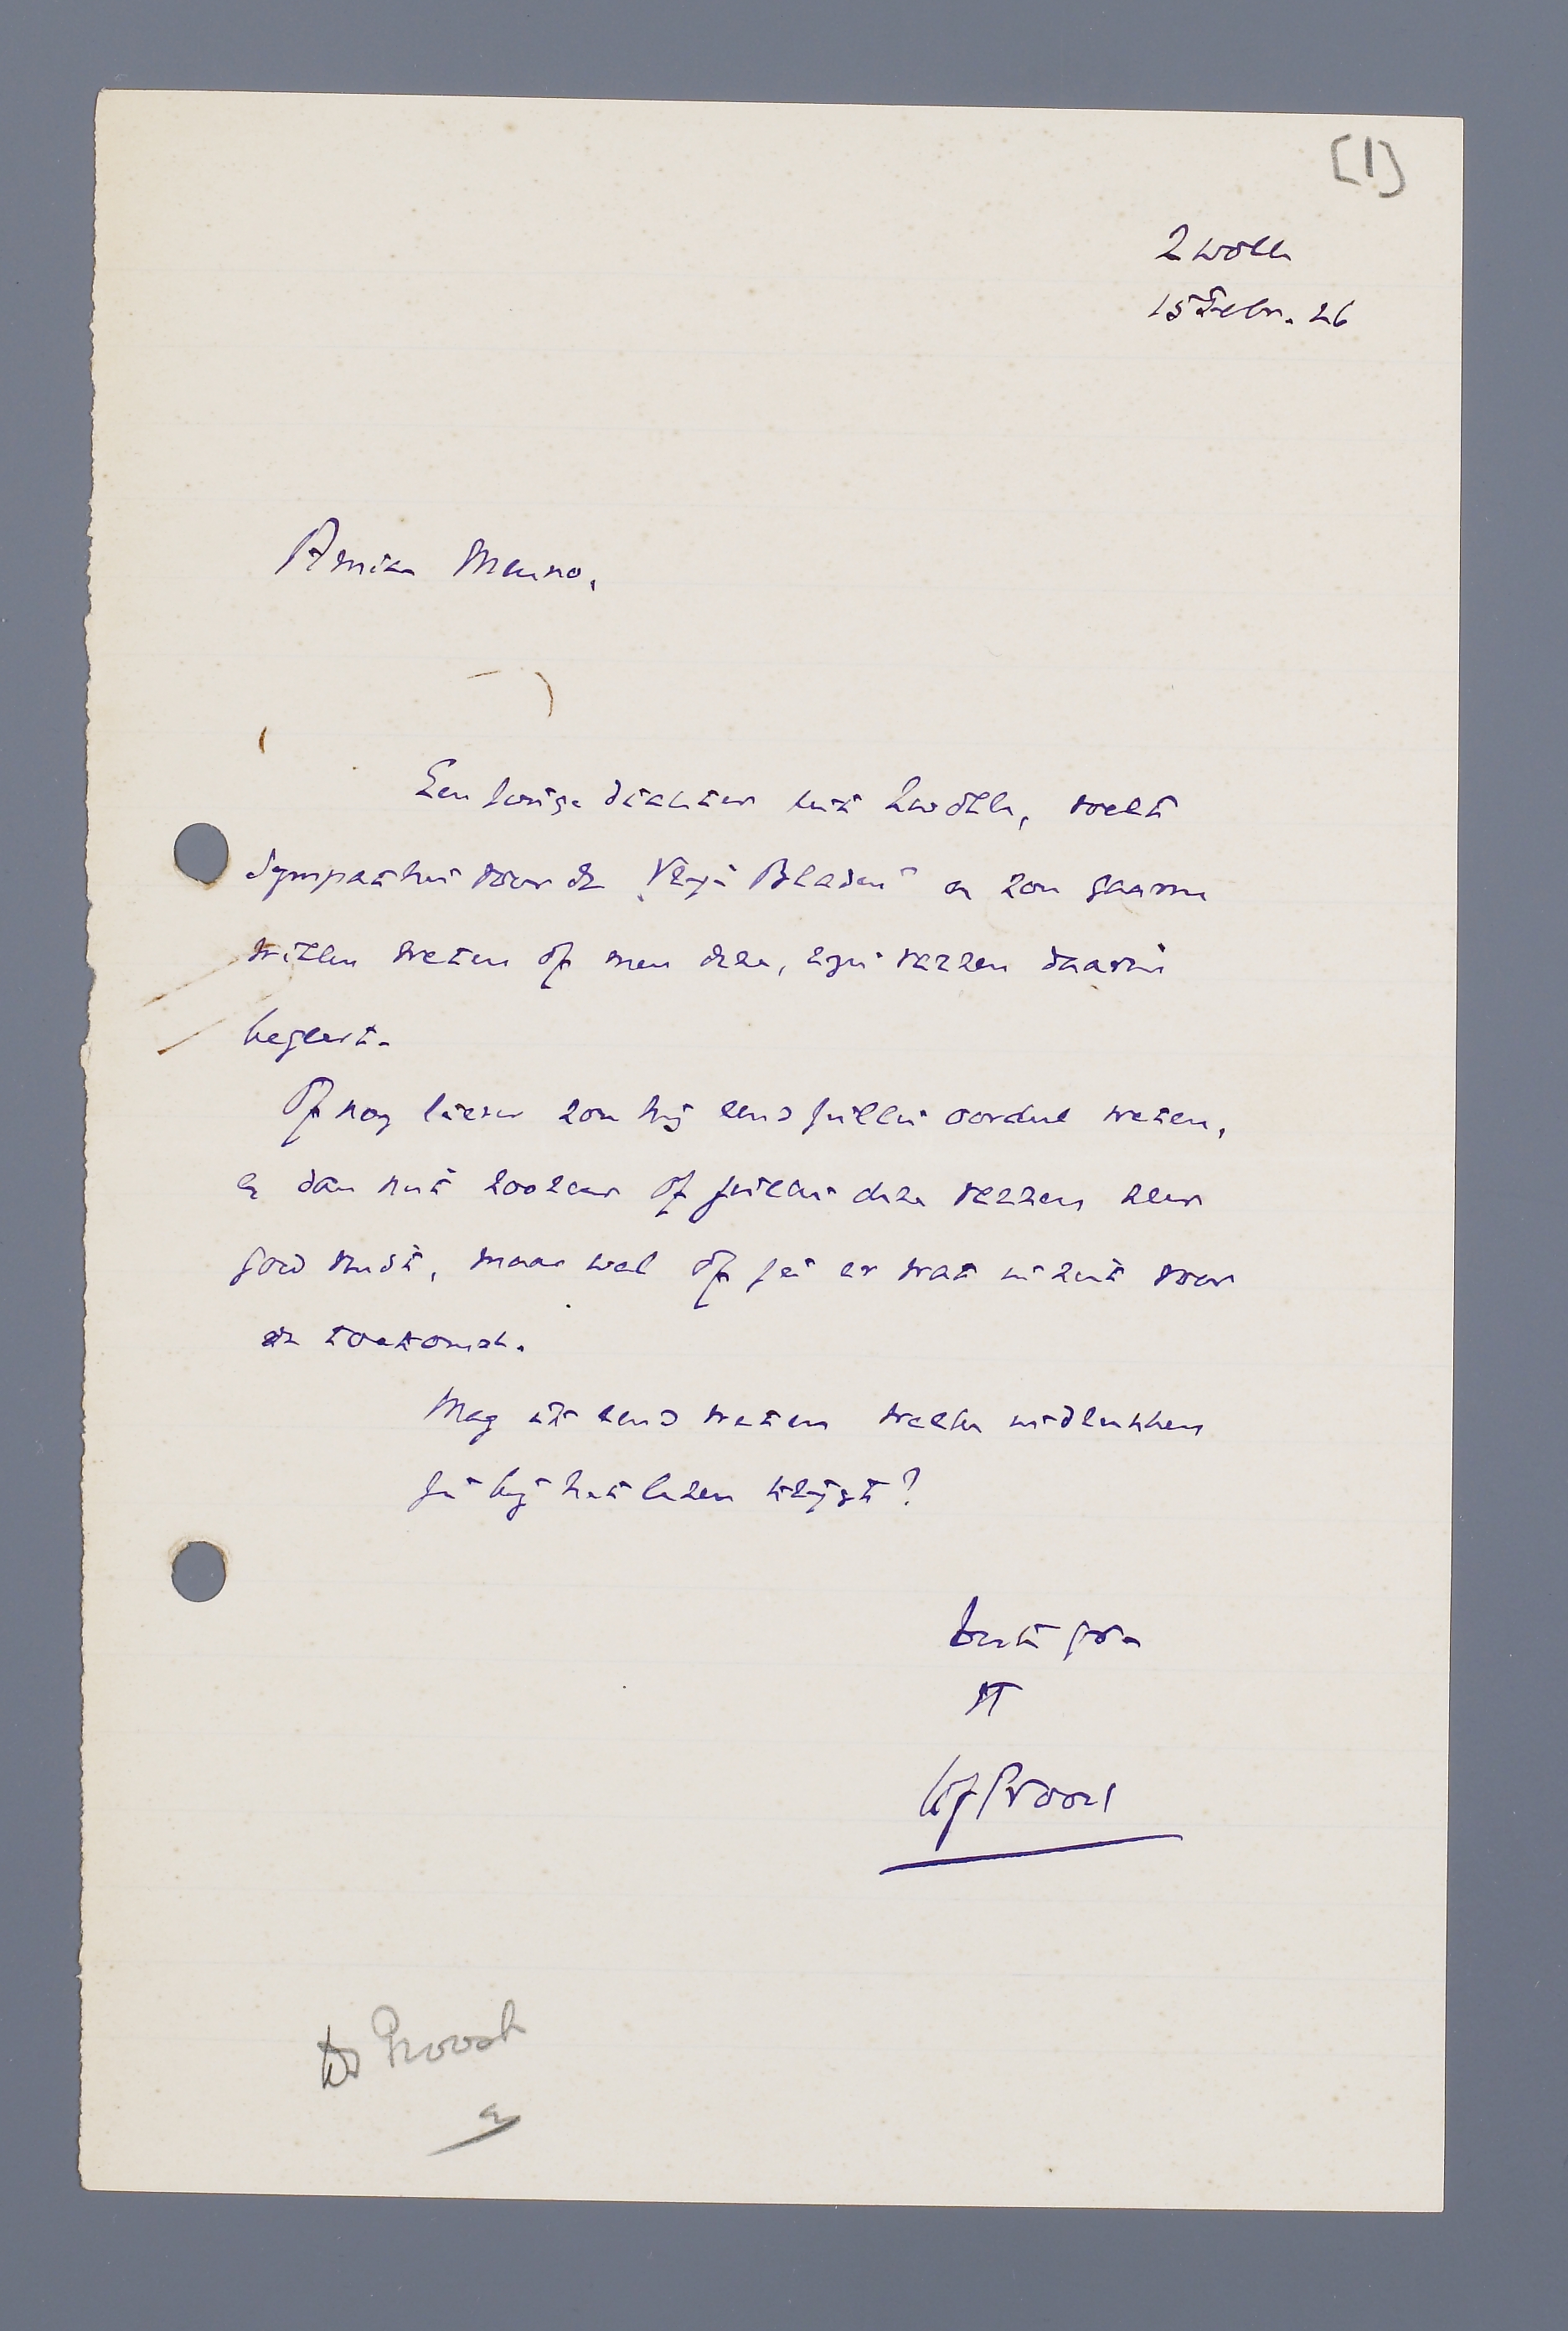 [1]
Zwolle
15 Febr. 26
Amice Menno,
Een jonge dichter uit Zwolle, voelt
sympathie voor de „Vrije Bladen" en zou gaarne
willen weten of men deze, zijn verzen daarin
begeert.
Of nog liever zou hij eens jullie oordeel weten,
en dan niet zoozeer of jullie deze verzen zeer
goed vindt, maar wel of je er wat in ziet voor
de toekomst.
Mag ik eens weten welke indrukken
je bij het lezen krijgt?
tout
π
Provoost